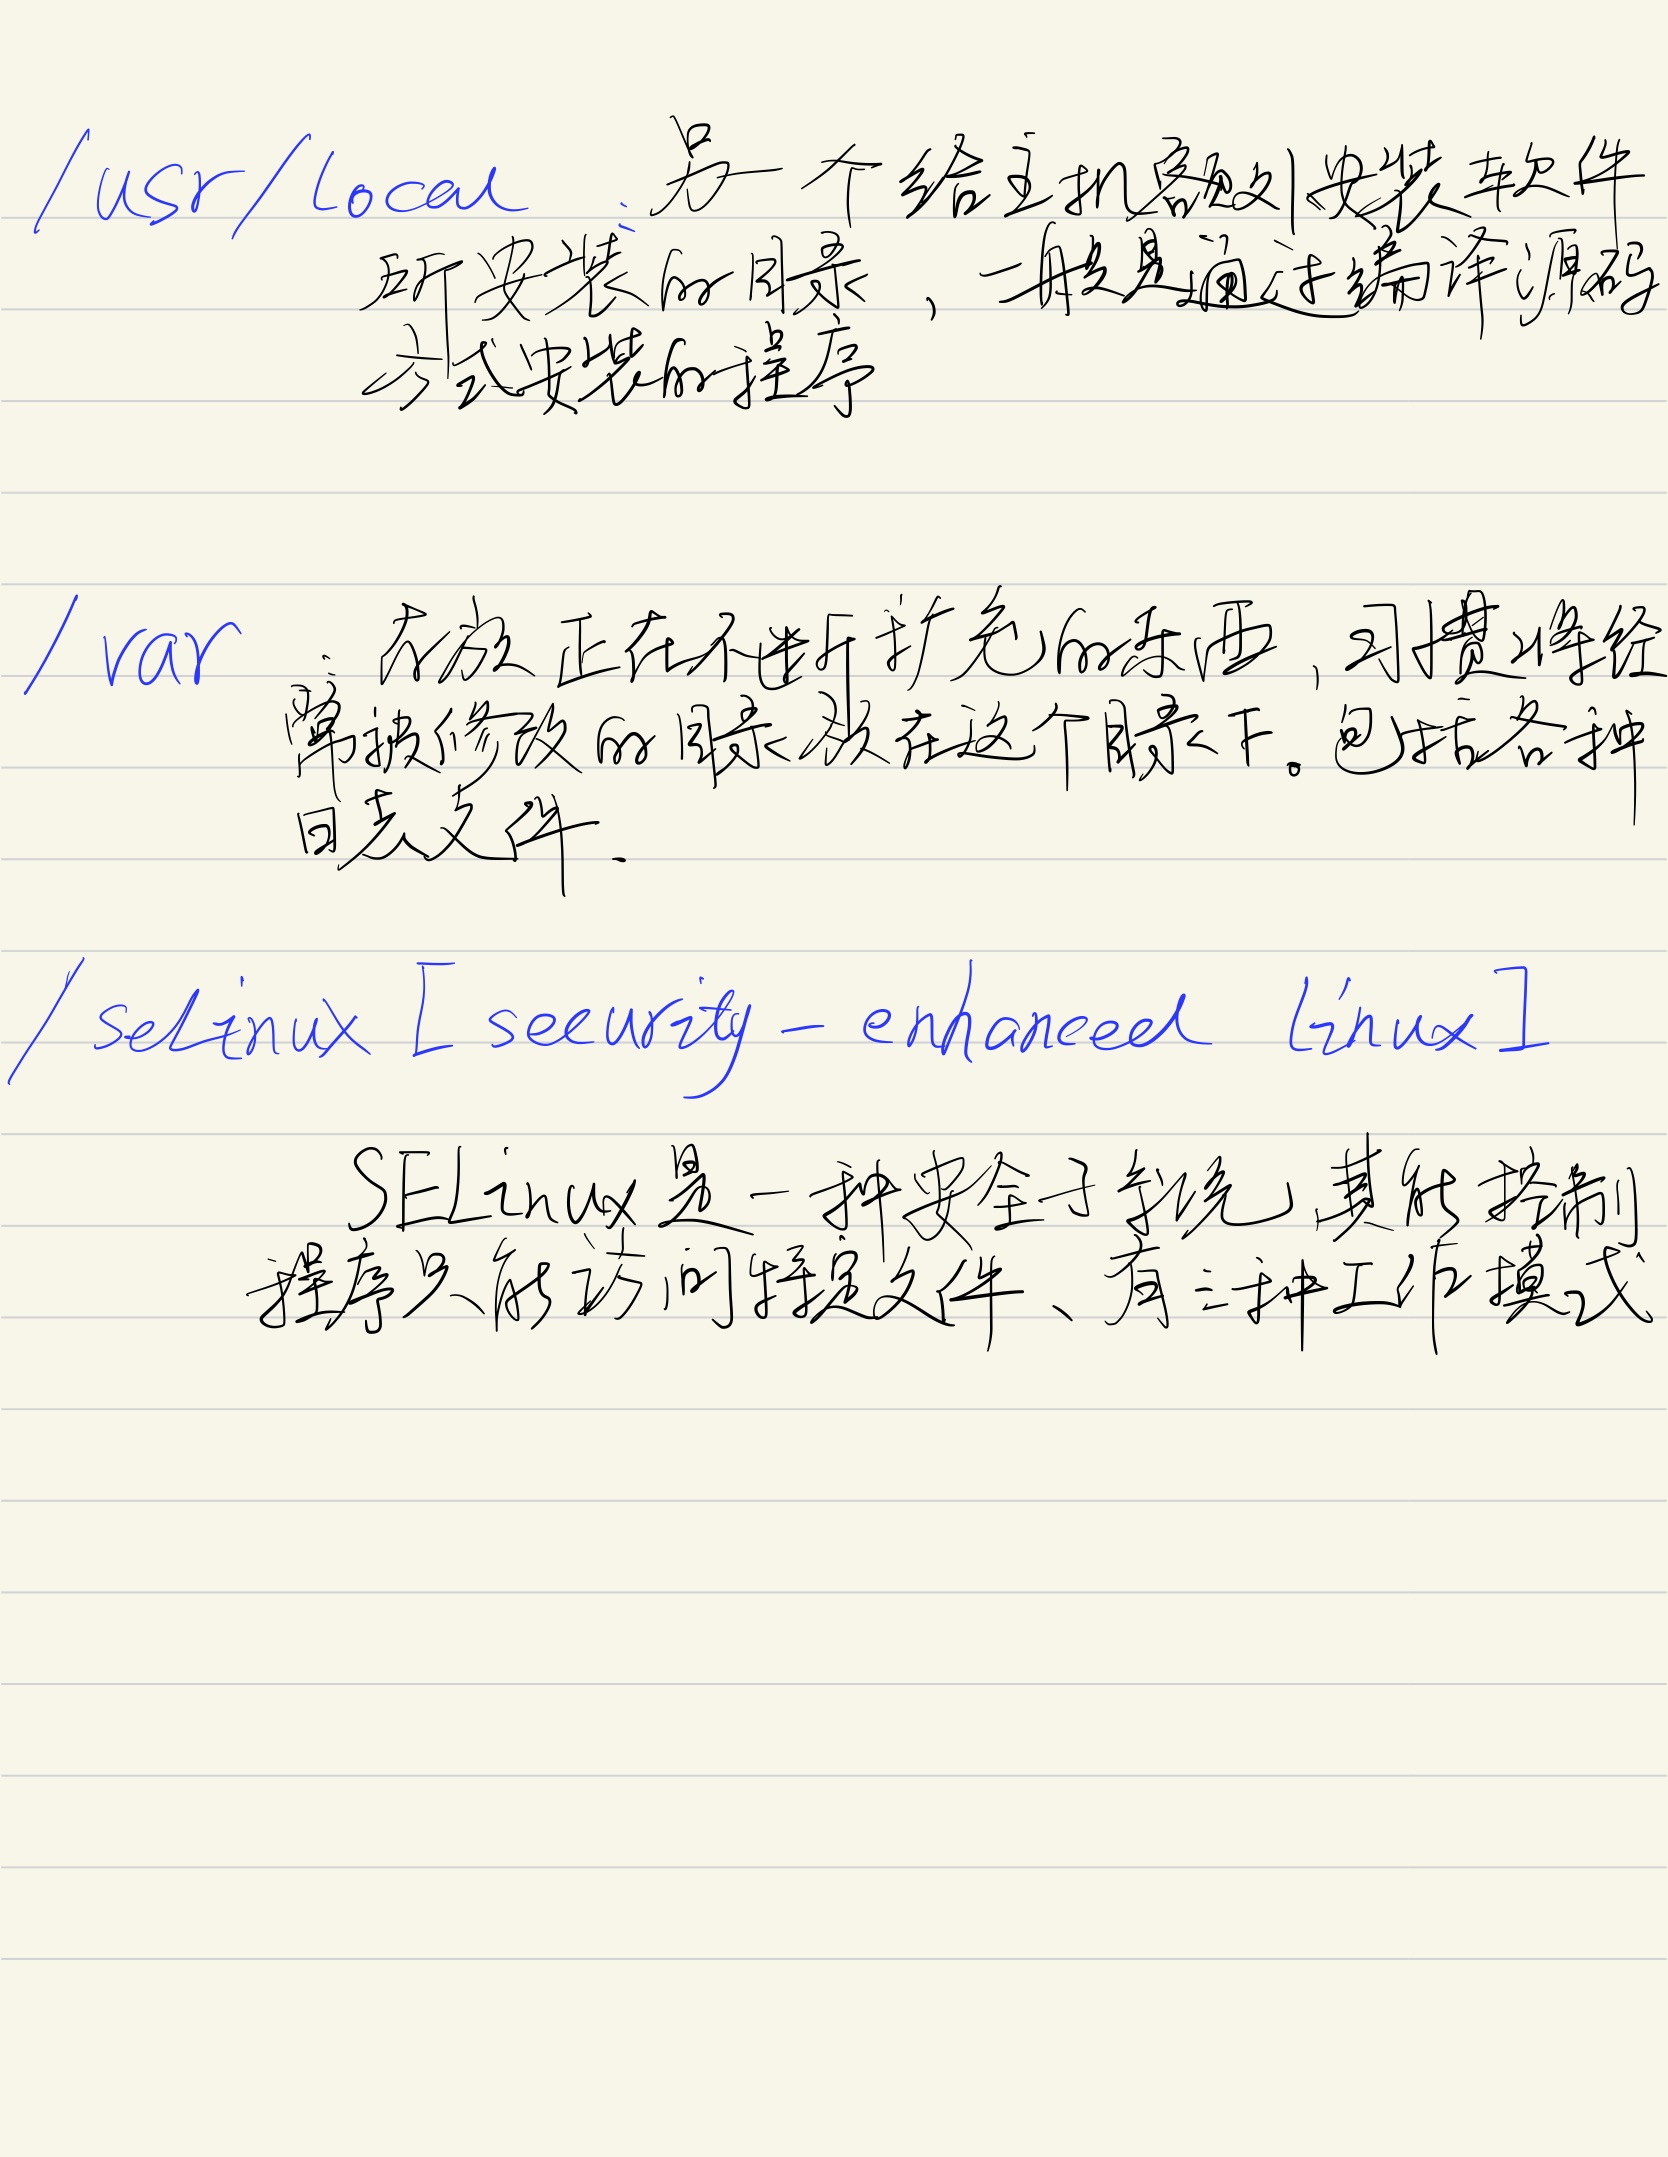 /usr/local : 另一个给主机额外安装软件
所安装的目录，一般是通过编译源码
方式安装的程序
/var : 存放正在不断扩充的东西，习惯将经
常被修改的目录放在这个目录下。包括各种
日志文件.
/selinux [security-enhanced linux]
SELinux是一种安全子系统，其能控制
程序只能访问特定文件、有三种工作模式